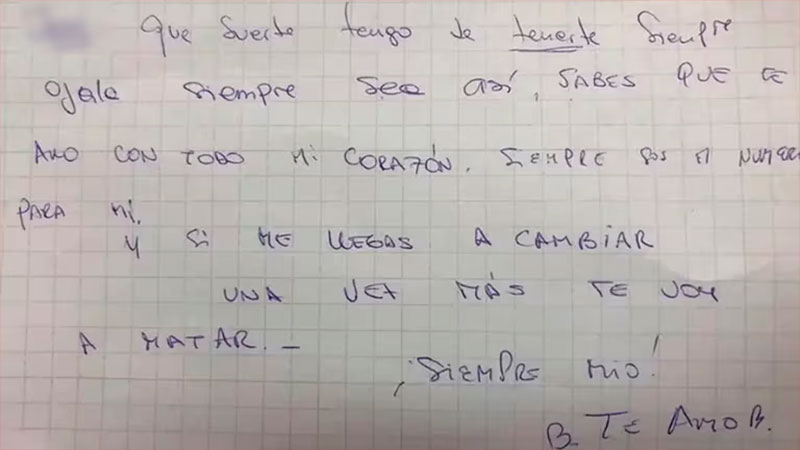 Que suerte tengo de tenerte siempre
Ojala siempre sea así, SABES QUE TE
AMO CON TODO MI CORAZÓN. SIEMPRE SOS EL NUMERO
PARA MI.
Y SI ME LLEGAS A CAMBIAR
UNA VEZ MÁS TE VOY
A MATAR. -
¡SIEMPRE MIO!
B. TE AMO B.